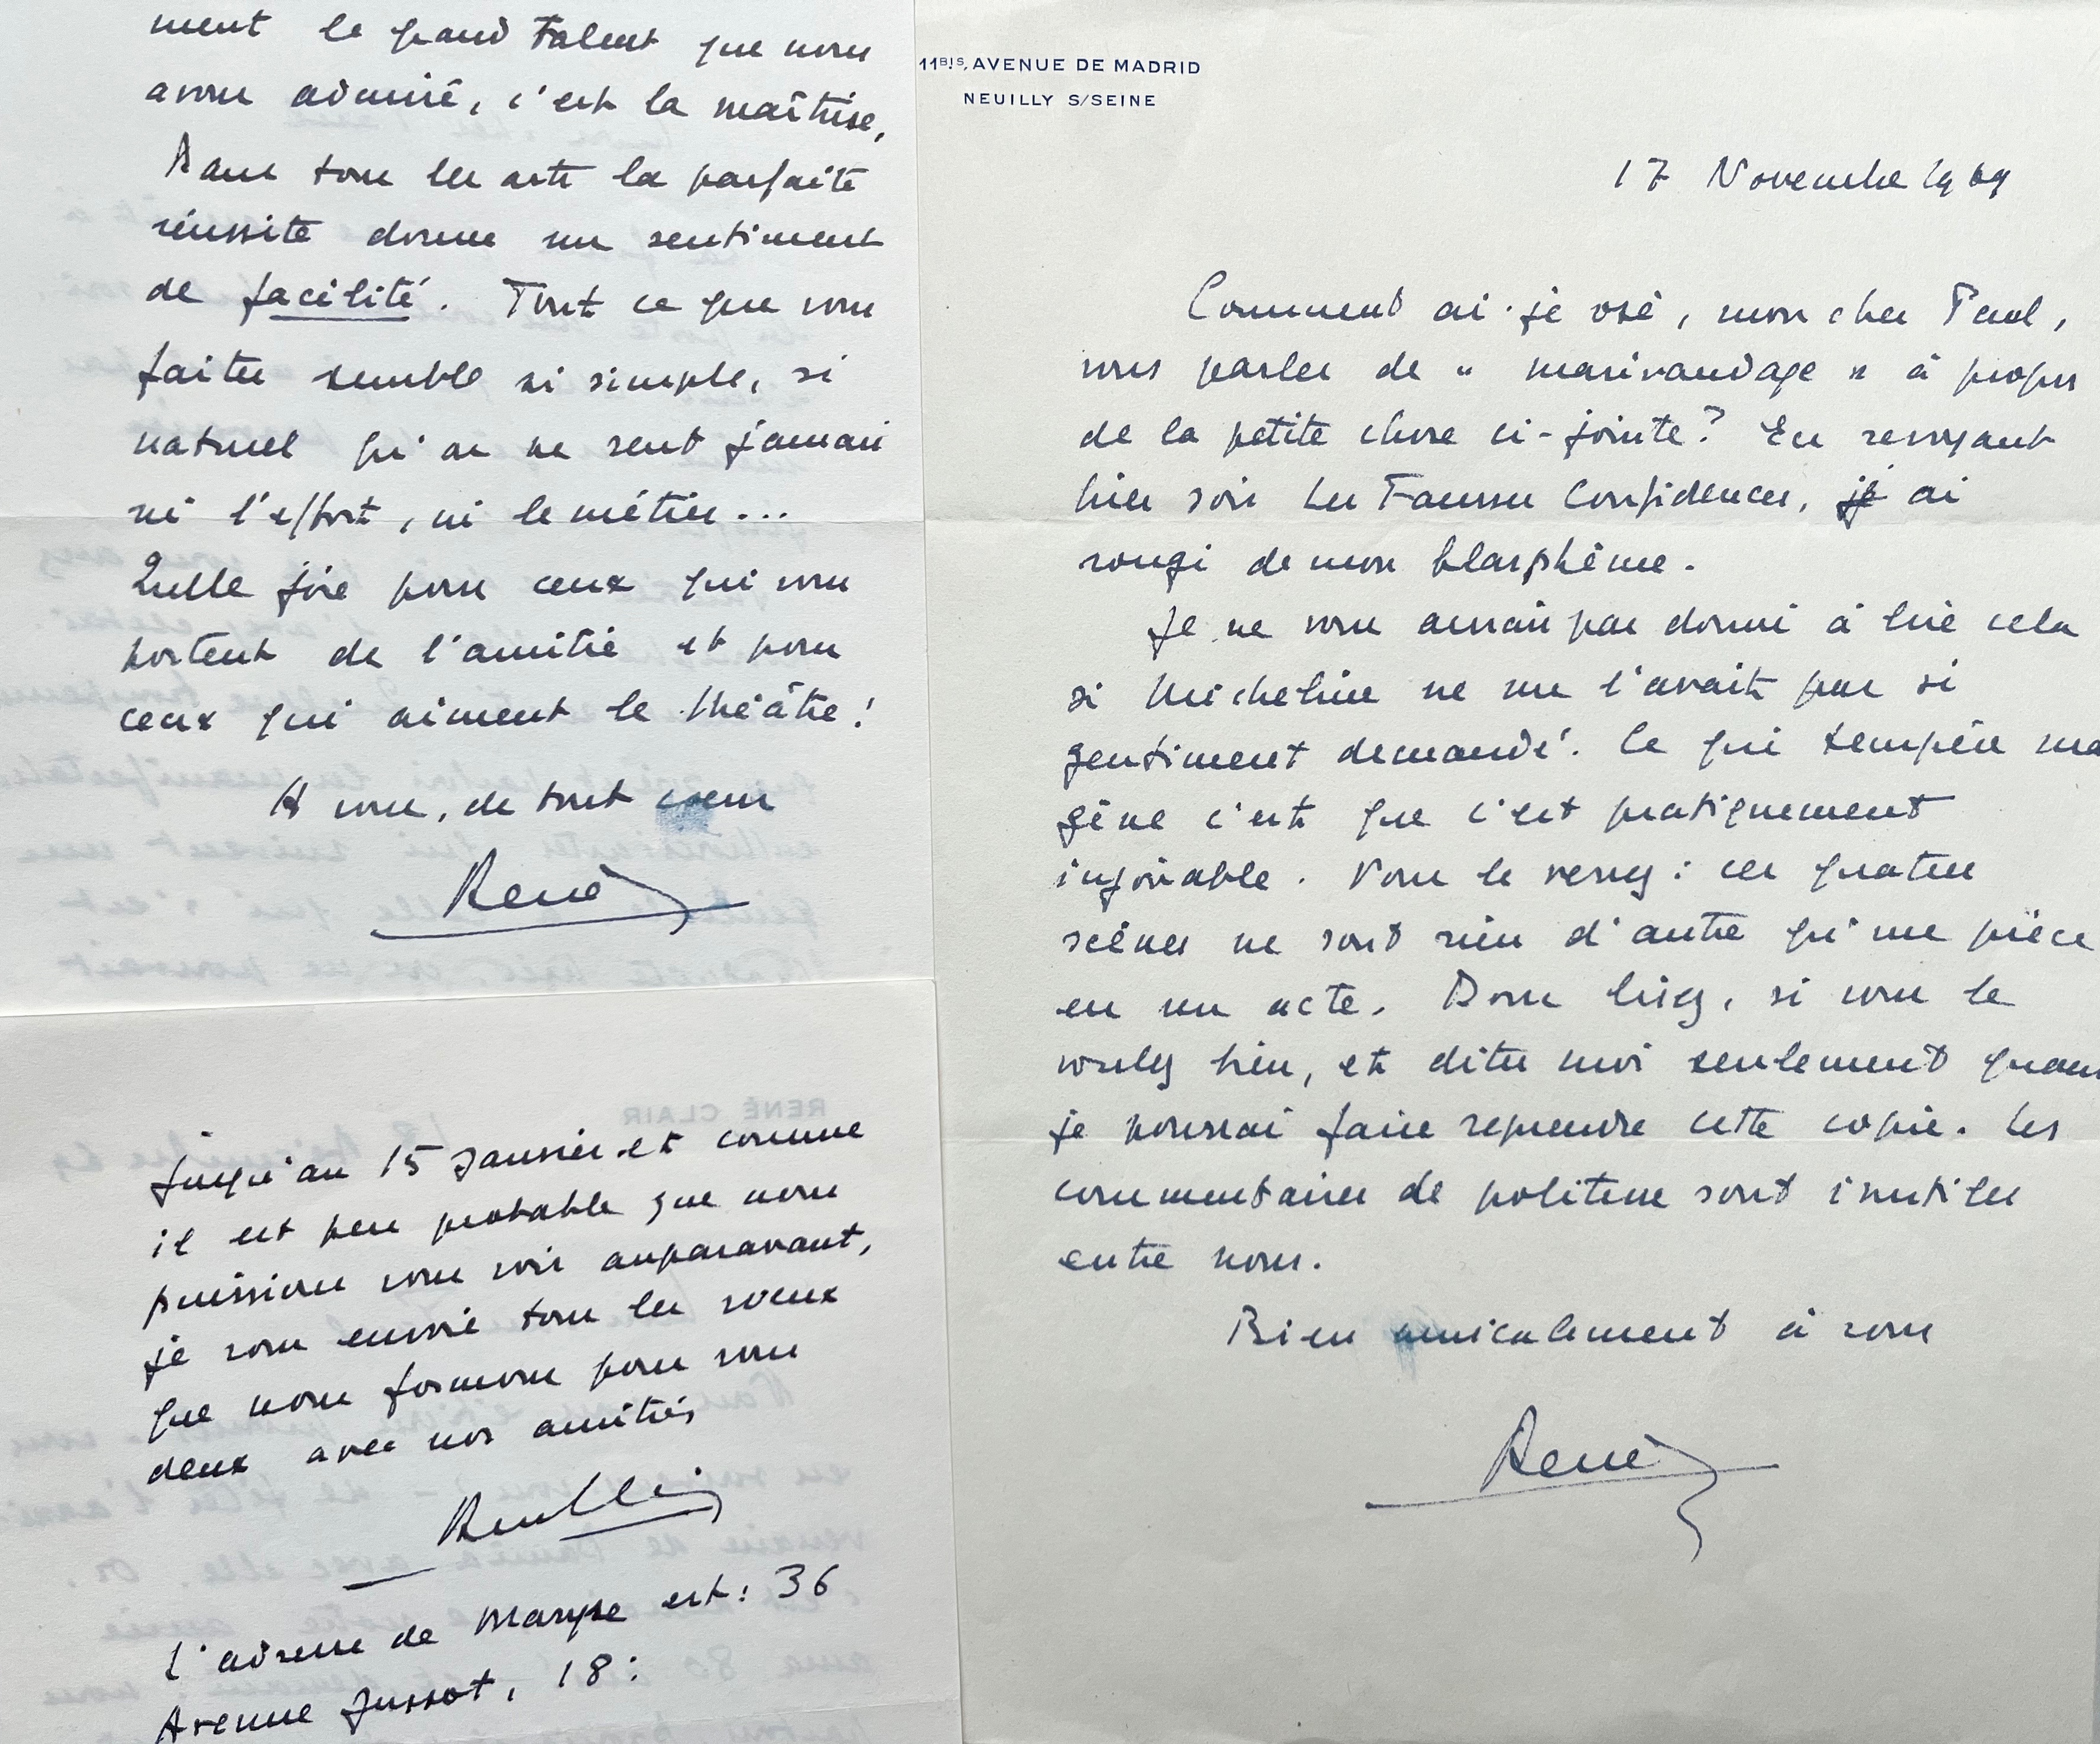 ment le grand talent que nous
avons admiré, c'est la maîtrise,
Dans tous les arts la parfaite
réussite donne un sentiment
de facilité. Tout ce que vous
faites semble si simple, si
naturel qu'on ne sent jamais
ni l'effort, ni le métier...
Quelle joie pour ceux qui vous
portent de l'amitié et pour
ceux qui aiment le théâtre!
A vous, de tout coeur
René
jusqu'au 15 Janvier et comme
il est peu probable que nous
puissions vous voir auparavant,
je vous envoie tous les voeux
que nous formons pour vous
deux avec nos amitiés
L'adresse de Maryse est: 36
Avenue Junot, 18:
RENÉ CLAIR
11BIS, AVENUE DE MADRID
NEUILLY S/SEINE
17 Novembre 1969
Comment ai-je osé, mon cher Paul,
vous parler de " marivaudage " à propos
de la petite chose ci-jointe? En revoyant
hier soir Les Fausses Confidences, j'ai
rougi de mon blasphème.
Je ne vous aurais pas donné à lire cela
si Micheline ne me l'avait pas si
gentiment demandé. Ce qui tempère ma
gêne c'est que c'est pratiquement
injouable. Vous le verrez: ces quatre
scènes ne sont rien d'autre qu'une pièce
en un acte. Donc lisez, si vous le
voulez bien, et dites moi seulement quand
je pourrai faire reprendre cette copie. Les
commentaires de politesse sont inutiles
entre nous.
Bien amicalement à vous
René